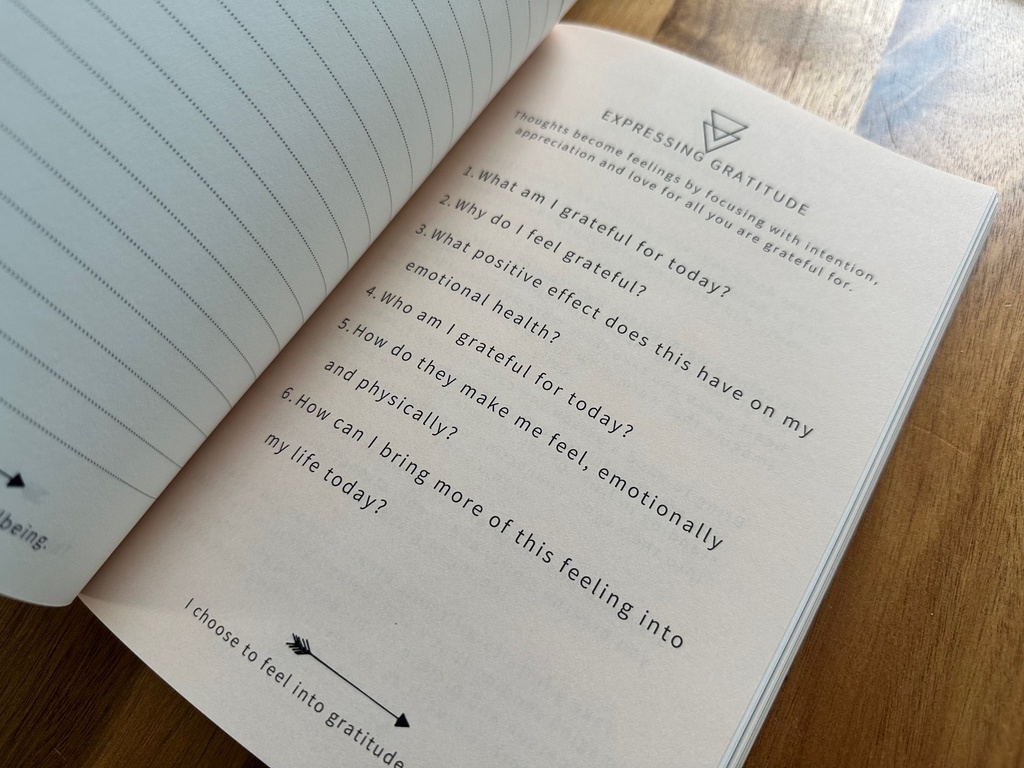 being.
EXPRESSING GRATITUDE
Thoughts become feelings by focusing with intention,
appreciation and love for all you are grateful for.
1. What am I grateful for today?
2. Why do I feel grateful?
3. What positive effect does this have on my
emotional health?
4. Who am I grateful for today?
5. How do they make me feel, emotionally
and physically?
6. How can I bring more of this feeling into
my life today?
I choose to feel into gratitude